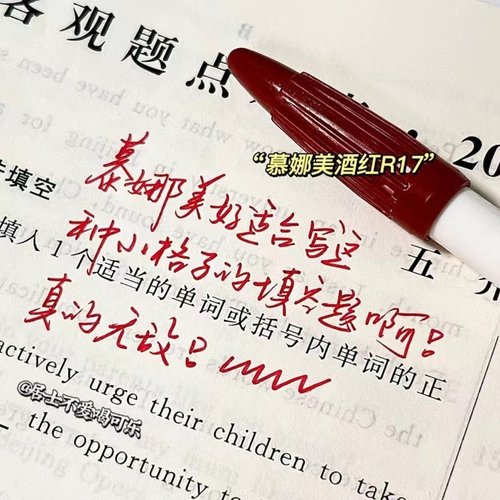 客观题点
20
“慕娜美酒红R1.7”
填空
慕娜美好适合写这
五
种小格子的填空题啊!
填入1个适当的单词或括号内单词的正
真的无敌!
actively urge their children to take
@居士不爱喝可乐
the opportunity to